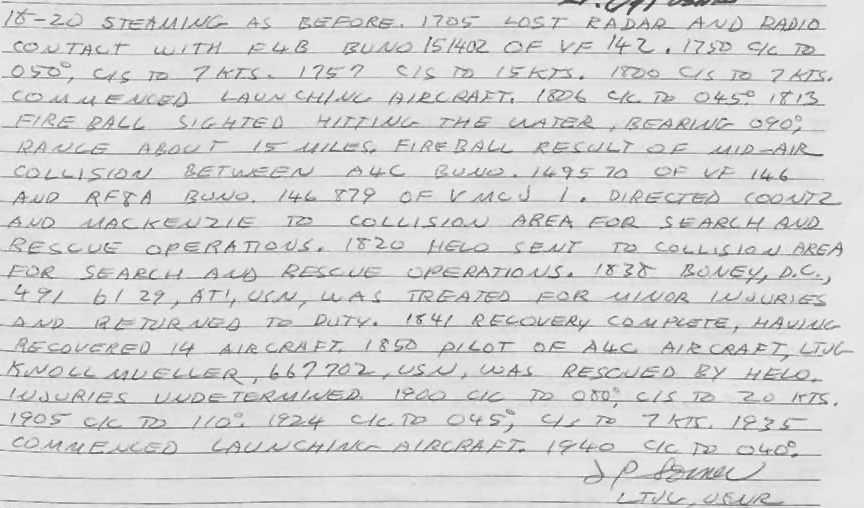 18-20 STEAMING AS BEFORE. 1705 LOST RADAR AND RADIO
CONTACT WITH F4B BUNO 151402 OF VF 142. 1750 C/C TO
050°, C/S TO 7 KTS. 1757 C/S TO 15 KTS. 1800 C/S TO 7 KTS.
COMMENCED LAUNCHING AIRCRAFT. 1806 C/C TO 045° 1813
FIRE BALL SIGHTED HITTING THE WATER, BEARING 090°,
RANGE ABOUT 15 MILES. FIREBALL RESULT OF MID-AIR
COLLISION BETWEEN A4C BUNO. 149570 OF VF 146
AND RF8A BUNO. 146 879 OF VMCJ 1. DIRECTED COONTZ
AND MACKENZIE TO COLLISION AREA FOR SEARCH AND
RESCUE OPERATIONS. 1820 HELO SENT TO COLLISION AREA
FOR SEARCH AND RESCUE OPERATIONS. 1838 BONEY, D.C.,
491 61 29, AT1, USN, WAS TREATED FOR MINOR INJURIES
AND RETURNED TO DUTY. 1841 RECOVERY COMPLETE, HAVING
RECOVERED 14 AIRCRAFT. 1850 PILOT OF A4C AIRCRAFT, LTJG
KNOLL MUELLER, 667702, USN, WAS RESCUED BY HELO.
INJURIES UNDETERMINED. 1900 C/C TO 080°, C/S TO 20 KTS.
1905 C/C TO 110°. 1924 C/C TO 045°, C/S TO 7 KTS. 1935
COMMENCED LAUNCHING AIRCRAFT. 1940 C/C TO 040°.
J P
LTJG, USNR